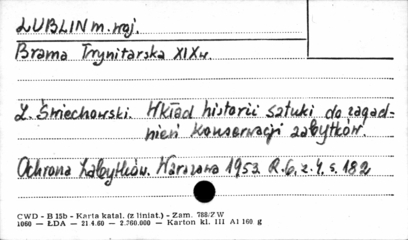 LUBLIN m. woj.
Brama Trynitarska XIX w.
L. Śmiechowski. Wkład historii sztuki do zagad-
nień konserwacji zabytków.
Ochrona Zabytków. Warszawa 1953 R.6, z.4, s. 182
CWD - B 15b - Karta katal. (z liniat.) - Zam. 788/Z W
1060 — ŁDA — 21.4.60 — 2.760.000 — Karton kl. III A1 160 g